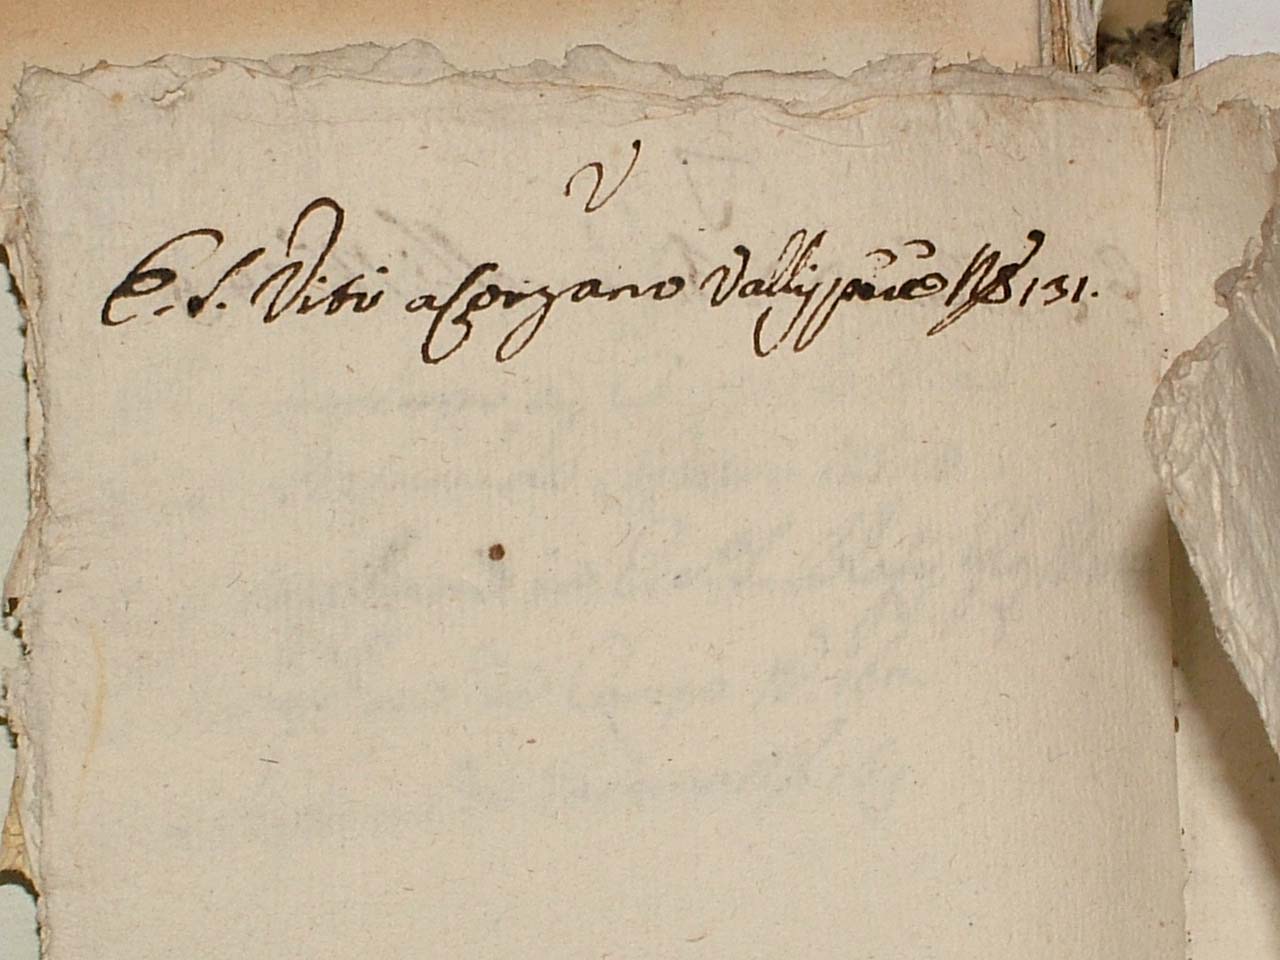 V
E. S. Viti a Corzano Vallis N.º 131.